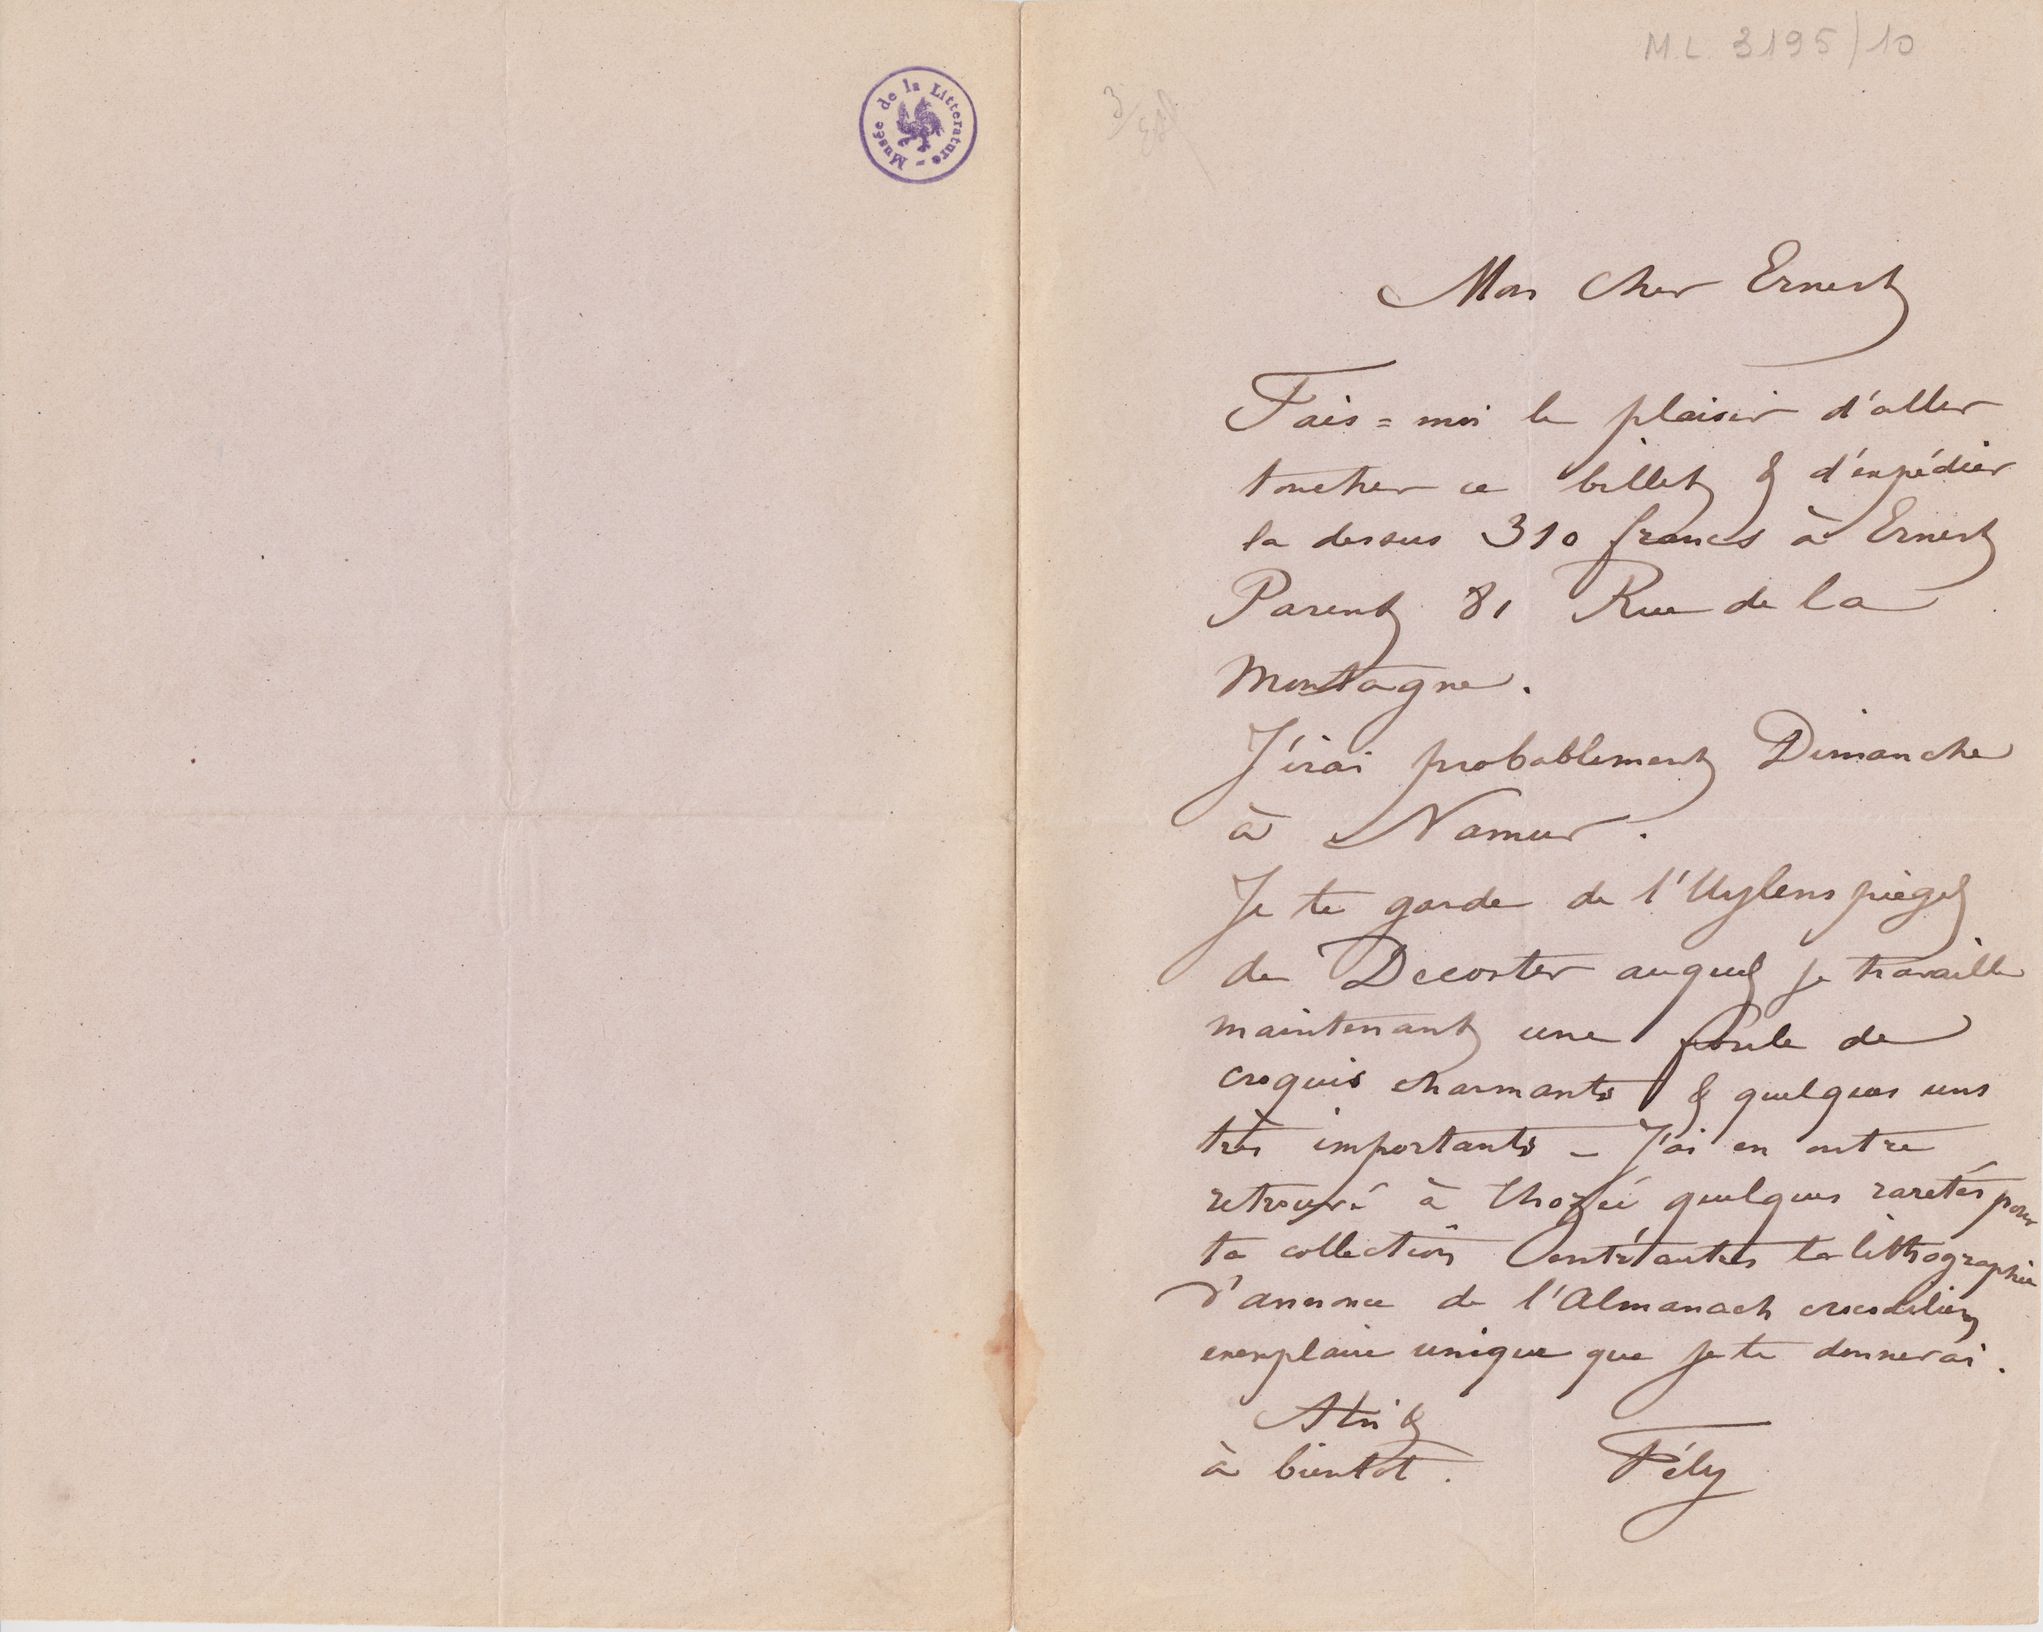 Musée de la Littérature -
M.L. 3195/10
Mon cher Ernest
Fais=moi le plaisir d'aller
toucher ce billet & d'expédier
la dessus 310 francs à Ernest
Parent 81 Rue de la
Montagne.
J'irai probablement Dimanche
à Namur.
Je te garde de l'Uylenspiégel
de Decoster auquel je travaille
maintenant une foule de
croquis charmants & quelques uns
très importants – J'ai en outre
retrouvé à Thozée quelques raretés pour
ta collection entr'autres la lithographie
d'annonce de l'Almanach crocodilien
exemplaire unique que je te donnerai.
à bientot.
Fély